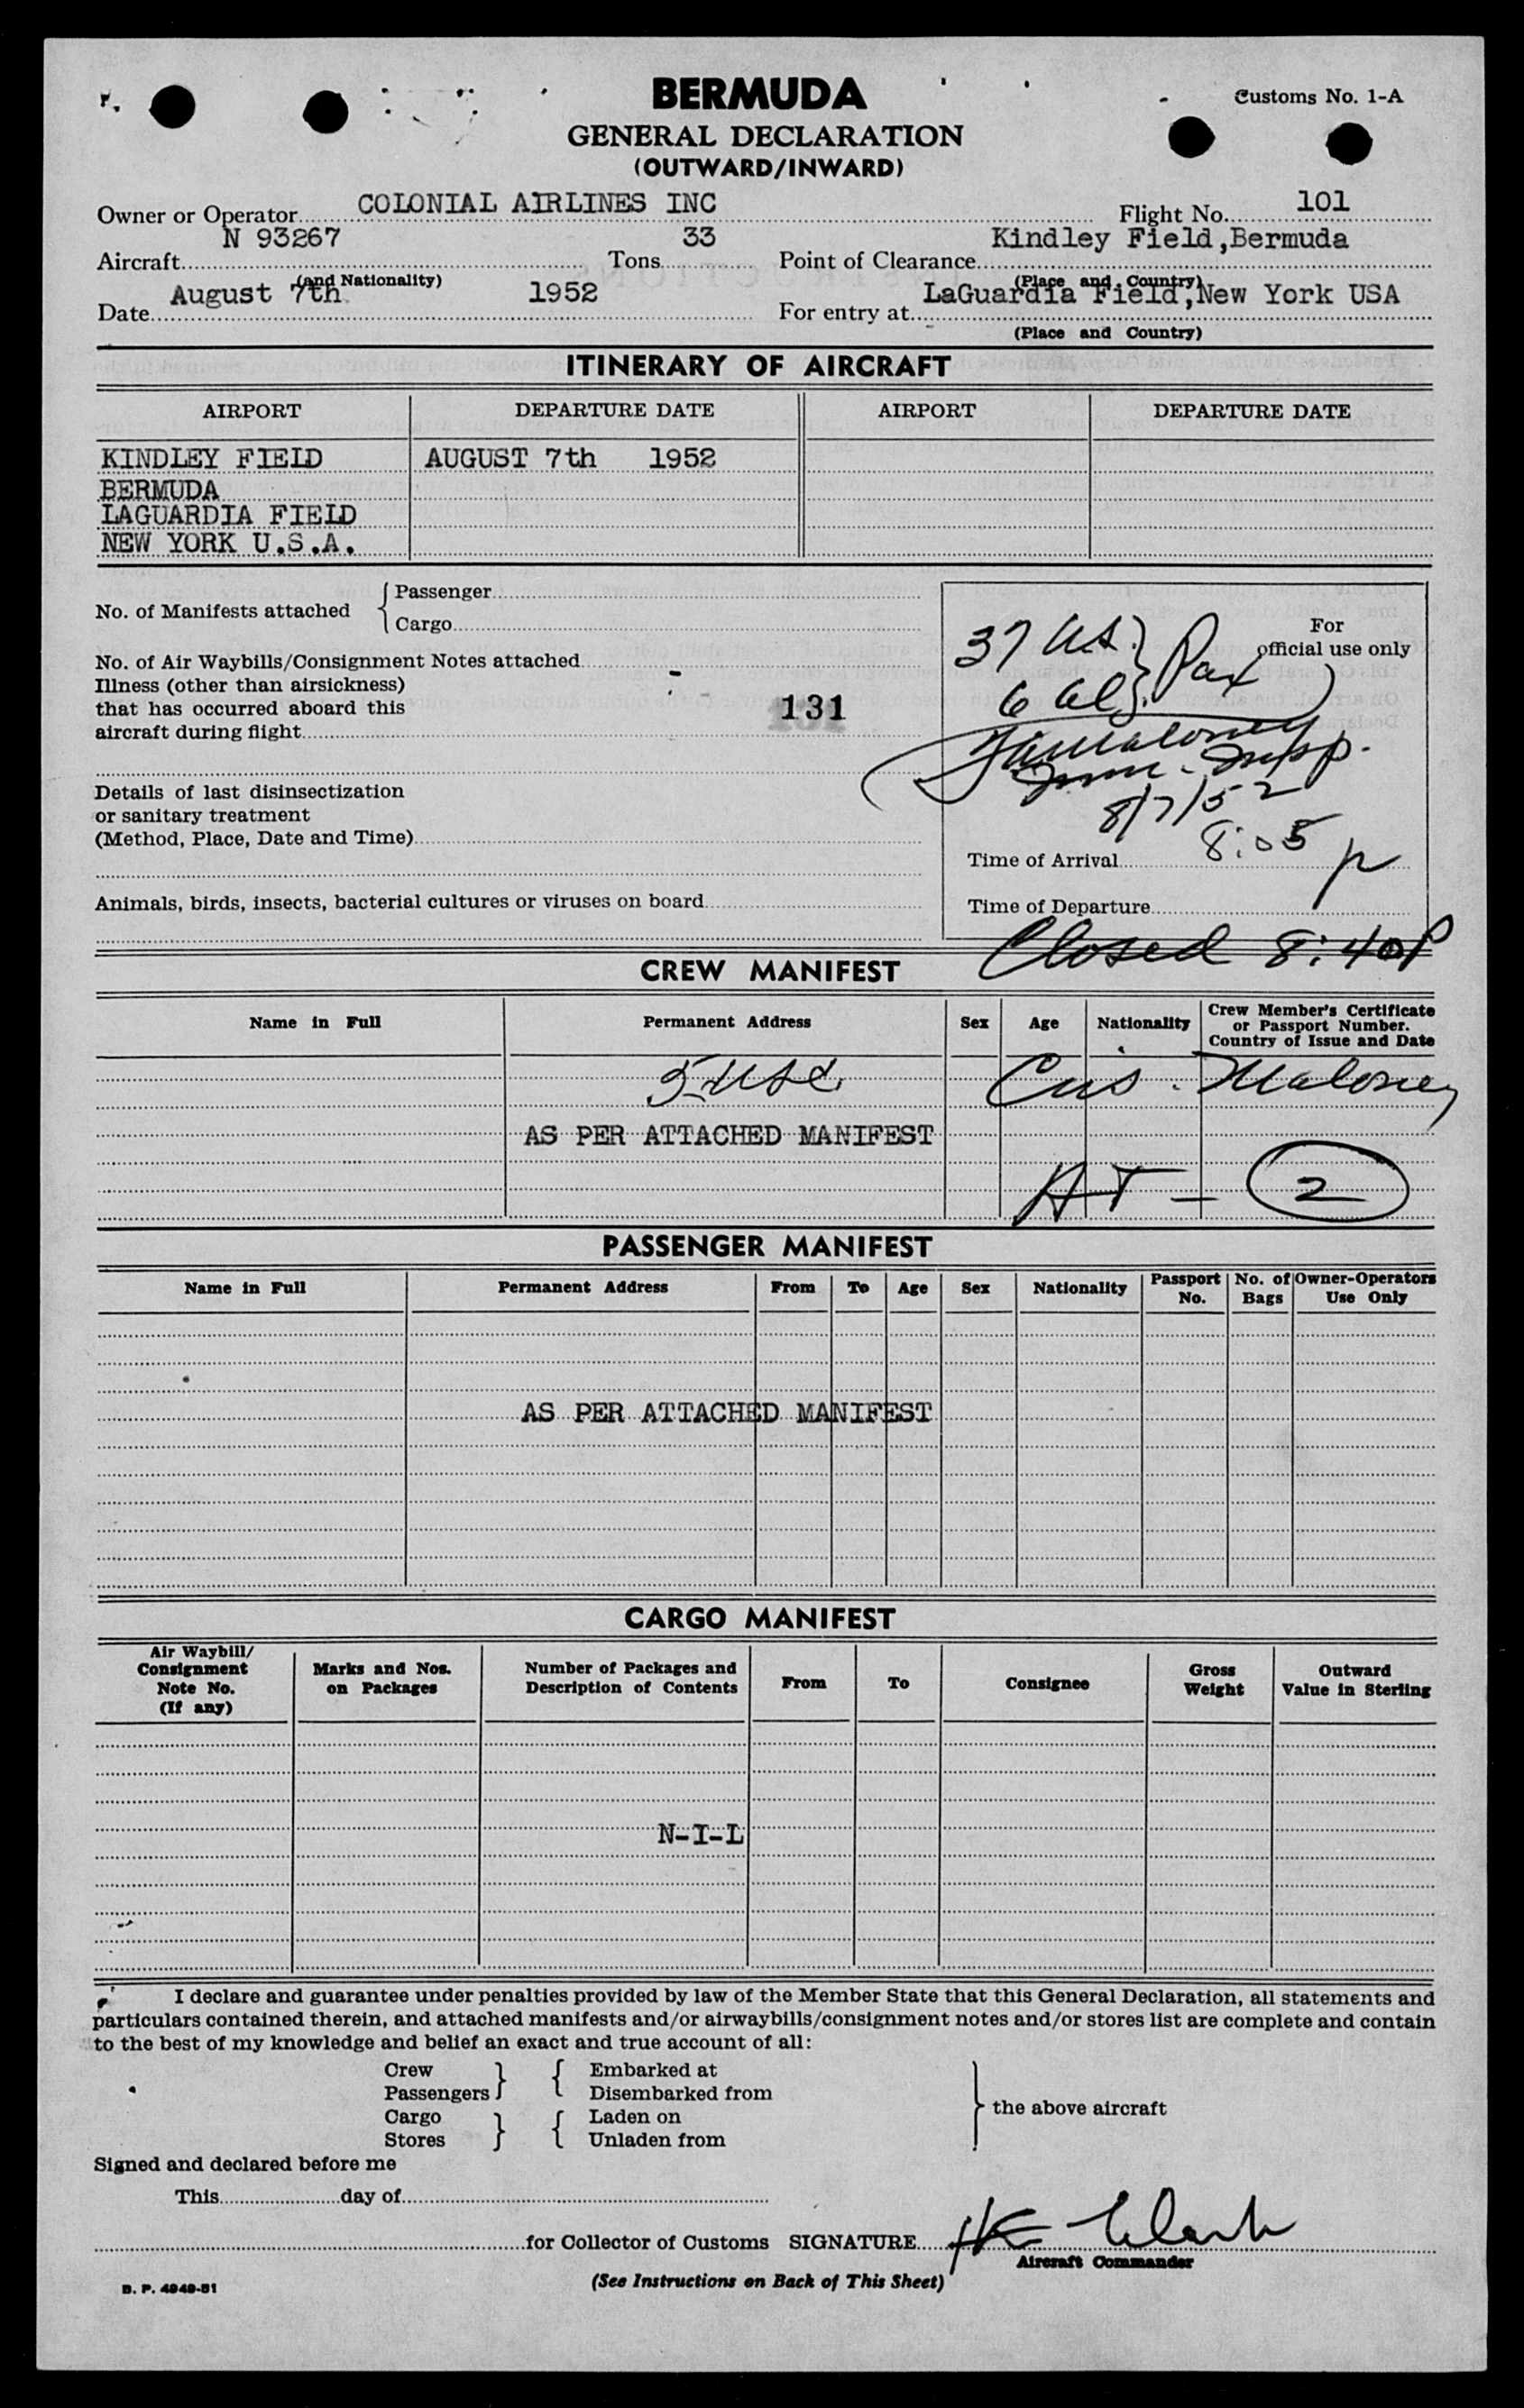 BERMUDA
Customs No. 1-A
GENERAL DECLARATION
(OUTWARD/INWARD)
Owner or Operator COLONIAL AIRLINES INC Flight No. 101
Aircraft N 93267 Tons 33 Point of Clearance Kindley Field,Bermuda
(and Nationality) (Place and Country)
Date August 7th 1952 For entry at LaGuardia Field,New York USA
(Place and Country)
ITINERARY OF AIRCRAFT
AIRPORT DEPARTURE DATE AIRPORT DEPARTURE DATE
KINDLEY FIELD AUGUST 7th 1952
BERMUDA
LAGUARDIA FIELD
NEW YORK U.S.A.
No. of Manifests attached { Passenger
Cargo
For
official use only
37 US } Pax
6 al
No. of Air Waybills/Consignment Notes attached
Illness (other than airsickness)
that has occurred aboard this
aircraft during flight
131
Maloney
Imm. Insp.
8/7/52
Details of last disinsectization
or sanitary treatment
(Method, Place, Date and Time)
Time of Arrival 8:05 p
Animals, birds, insects, bacterial cultures or viruses on board
Time of Departure
Closed 8:40P
CREW MANIFEST
Name in Full Permanent Address Sex Age Nationality Crew Member's Certificate
or Passport Number.
Country of Issue and Date
5 USC Cus. Maloney
AS PER ATTACHED MANIFEST
HT - 2
PASSENGER MANIFEST
Name in Full Permanent Address From To Age Sex Nationality Passport No. No. of Bags Owner-Operators Use Only
AS PER ATTACHED MANIFEST
CARGO MANIFEST
Air Waybill/
Consignment
Note No.
(If any)
Marks and Nos.
on Packages
Number of Packages and
Description of Contents
From To Consignee
Gross
Weight
Outward
Value in Sterling
N-I-L
I declare and guarantee under penalties provided by law of the Member State that this General Declaration, all statements and
particulars contained therein, and attached manifests and/or airwaybills/consignment notes and/or stores list are complete and contain
to the best of my knowledge and belief an exact and true account of all:
Crew } { Embarked at
Passengers Disembarked from
the above aircraft
Cargo } { Laden on
Stores Unladen from
Signed and declared before me
This day of
for Collector of Customs SIGNATURE HE Clark
Aircraft Commander
B. P. 4949-51
(See Instructions on Back of This Sheet)